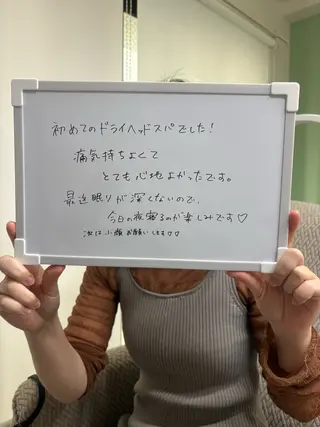 初めてのドライヘッドスパでした！
痛気持ちよくて
とても心地よかったです。
最近眠りが深くないので、
今日の夜寝るのが楽しみです♡
次は小顔お願いします♡♡